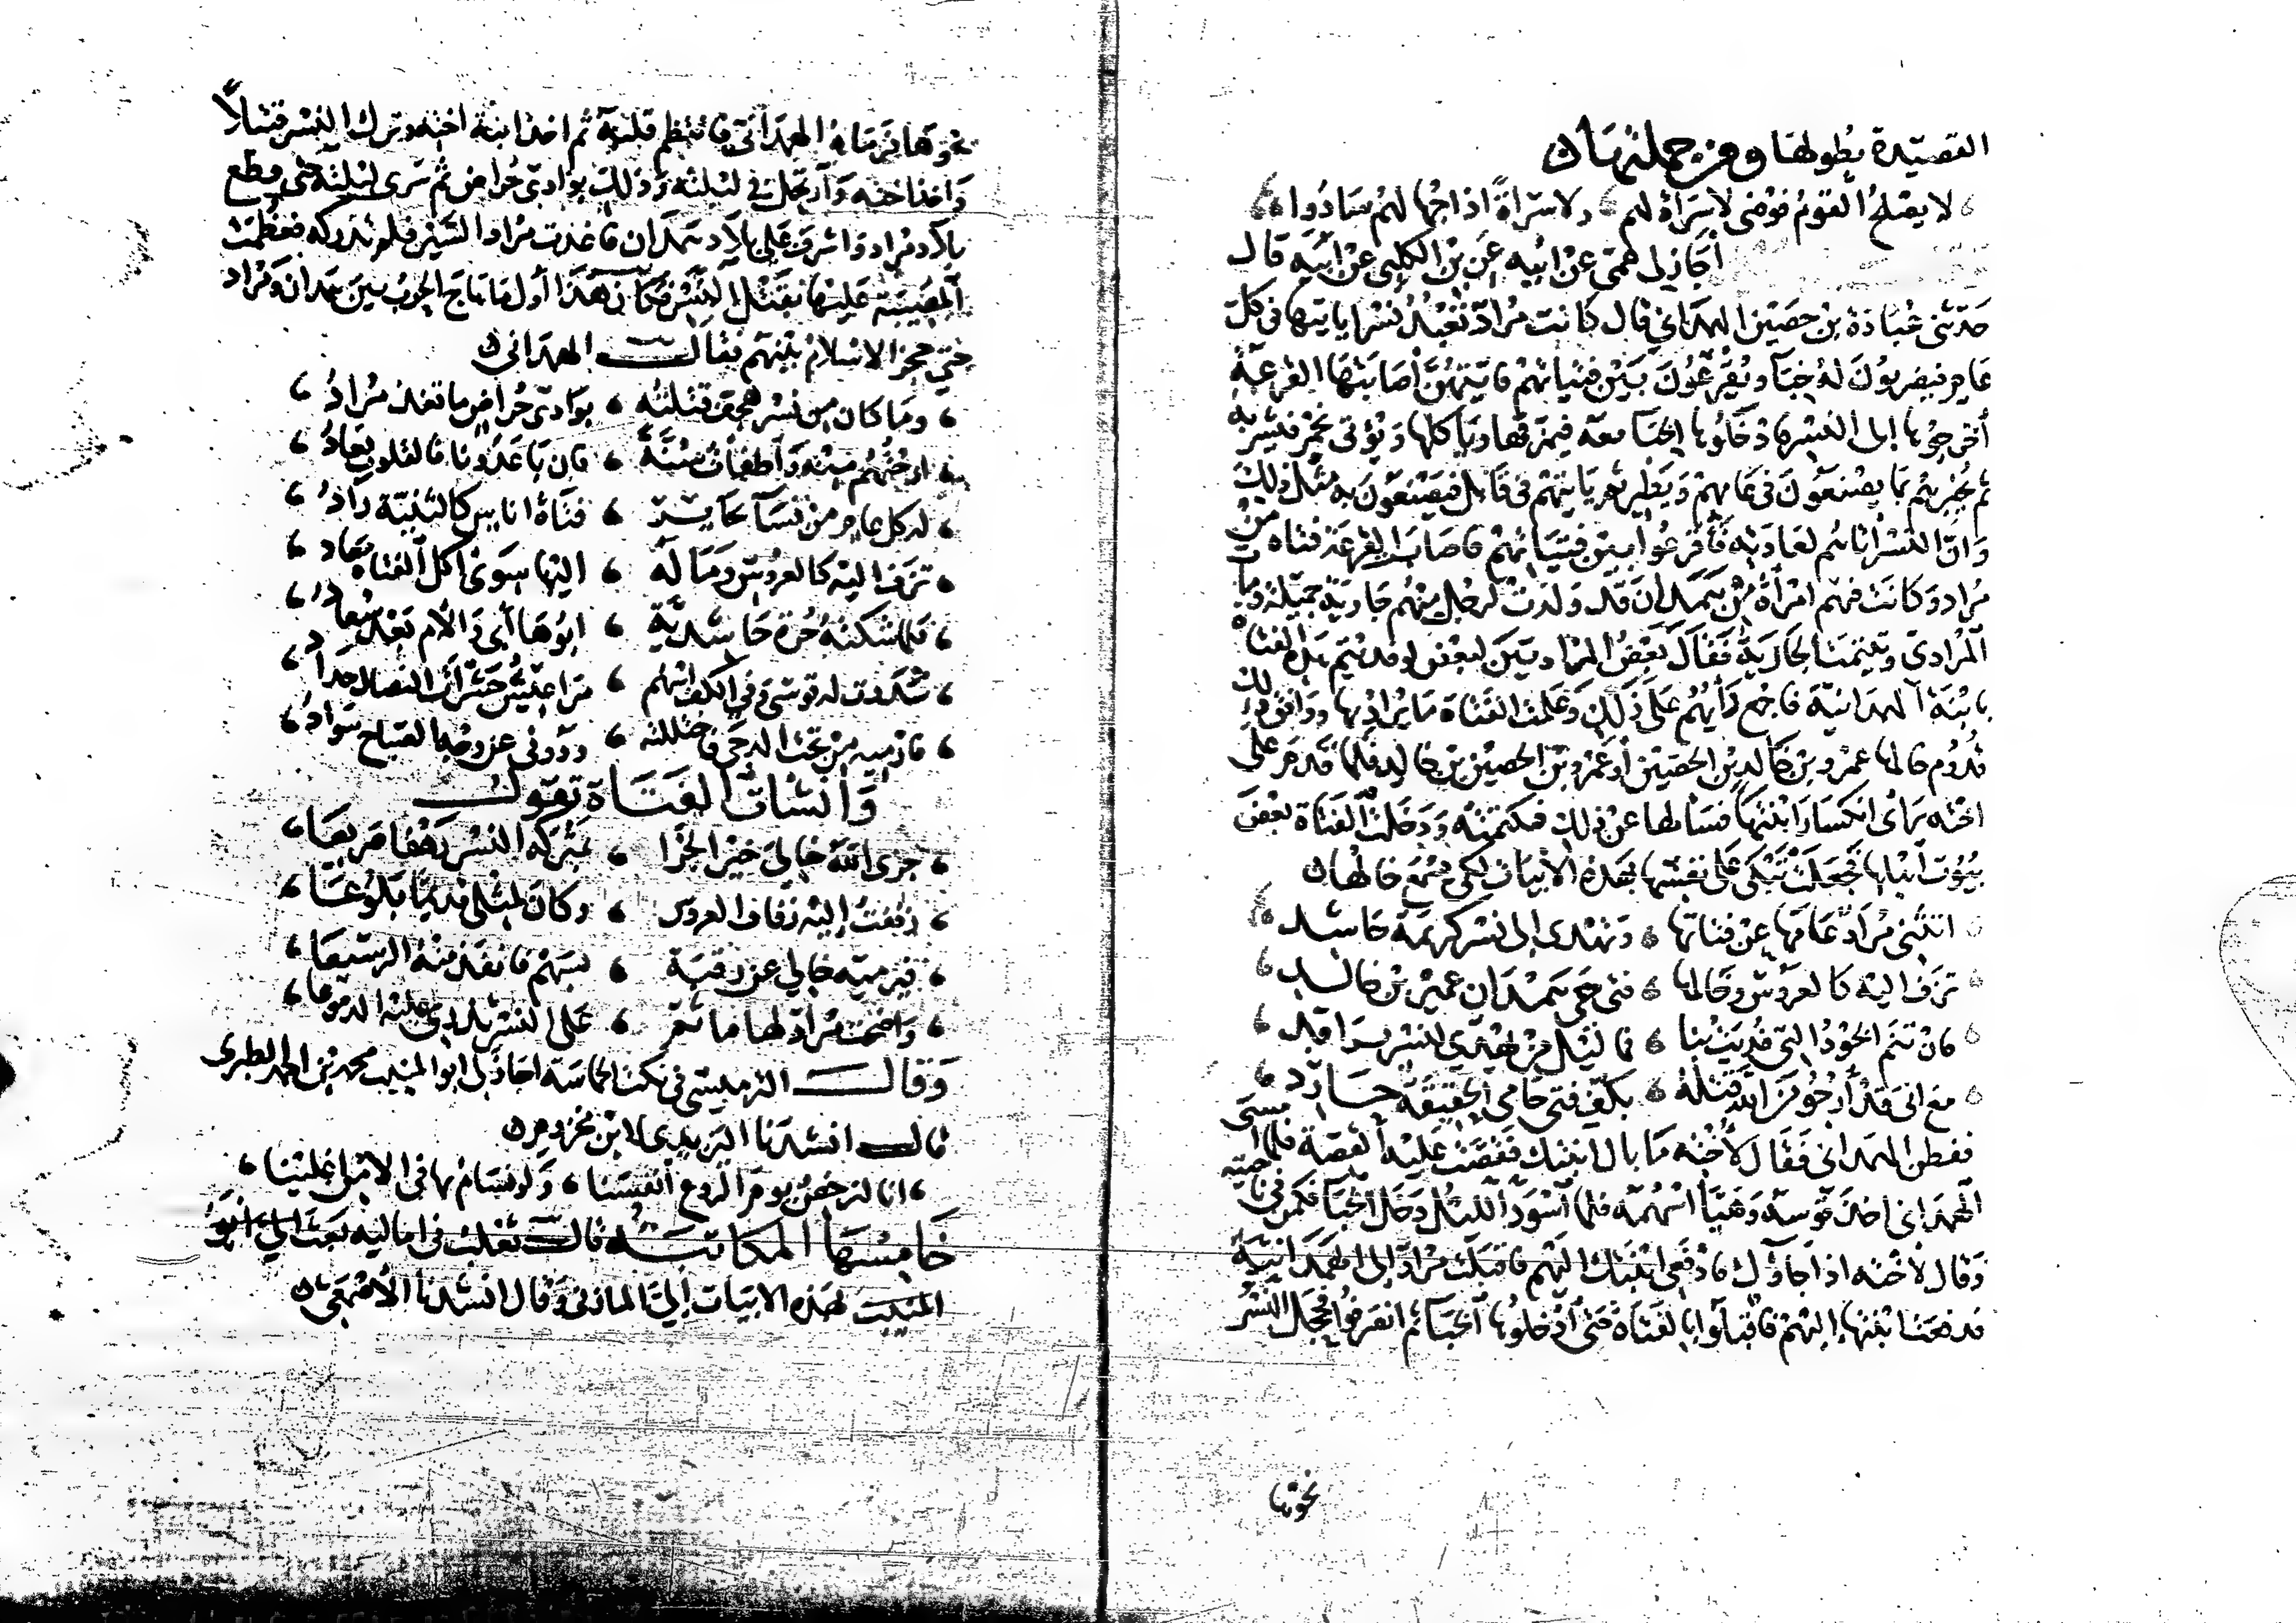 القصيدة بطولها ومن جملتها
لا يصلح القوم فوضى لا سراة لهم ولا سراة اذا جهالهم سادوا
أجاز لي عمى عن ابيه عن بن الكلبى عن ابيه قال
حدثنى عبادة بن حصين الهمدانى قال كانت مراد تعبد نسرا ياتيها في كل
عام فيضربون له خباً ويقرعون بين فتياتهم فايتهن أصابتها القرعة
أخرجوها إلى النسر فادخلوها الخبا معه فيمزقها وياكلها ويؤتى بخمر فيشربه
ثم يخبرهم بما يصنعون في عامهم ويطير ثم ياتيهم في قابل فيصنعون به مثل ذلك
وان النسر اتاهم لعادته فأقرعوا بين فتياتهم فاصابت القرعة فتاة من
مراد وكانت فيهم امرأة من همدان قد ولدت لرجل منهم جارية جميلة ومات
المرادى وتيتمت الجارية فقال بعض المراديين لبعض لو فديتم هذه الفتاة
بابنة الهمدانية فاجمع رأيهم على ذلك وعلمت الفتاة ما يراد بها ووافق ذلك
قدوم خالها عمرو بن خالد بن الحصين أو عمرو بن الحصين بن خالد فلما قدم على
اخته رأى انكسار ابنتها فسألها عن ذلك فكتمته ودخلت الفتاة بعض
بيوت اهلها فجعلت تبكى على نفسها بهذه الأبيات لكي يسمع خالها
اتثنى مراد عامها عن فتاتها وتهدى إلى نسر كريمة حاشد
تزف اليه كالعروس وخالها فتى حى همدان عمير بن خالد
فان تنم الخود التى فديت بنا فما ليل من تهدى لنسر براقد
مع انى قد أرجو من الله قتله بكف فتى حامى الحقيقة حارد
ففطن الهمدانى فقال لأخته ما بال ابنتك فقصت عليه القصة فلما امسى
الهمدانى اخذ قوسه وهيأ اسهمه فلما اسود الليل دخل الخبا فكمن في ناحيته
وقال لأخته اذا جاؤك فادفعى ابنتك اليهم فاقبلت مراد إلى الهمدانية
فدفعت ابنتها إليهم فاقبلوا بالفتاة حتى أدخلوها الخباء ثم انصرفوا فحجل النسر
نحوها
نحوها فرماه الهمدانى فانتظم قلبه ثم اخذ ابنة اخته وترك النسر قتيلاً
واخذ اخته وارتحل في ليلته وذلك بوادى حراض ثم سرى ليلته حتى قطع
بلاد مراد واشرف على بلاد همدان فاغذت مراد السير فلم تدركه فعظمت
المصيبة عليها بقتل النسر فكان هذا أول ما هاج الحرب بين همدان ومراد
حتى حجز الاسلام بينهم فقال الهمدانى
وما كان من نسر هجف قتلته بوادى حراض ما تغذ مراد
ارحتهم منه وأطفأت سنة فان باعدونا فالقلوب بعاد
له كل عام من نسآ مخاير فتاة اناس كالبنية زاد
تزف اليه كالعروس وما له اليها سوى اكل الفتاة معاد
فلما شكته حرة حاشدية ابوها أبى والأم بعد سعاد
شددت له قوسى وفي الكف اسهم مراعيش حشرات النصال حداد
فارميه من تحت الدجى فاختللته ودونى عن وجه الصباح سواد
وأنشأت الفتاة تقول
جزى الله خالى خير الجزا بتركه النسر زهفا صريعا
زففت إليه زفاف العروس وكان لمثلى قديما بلوعا
فيرميه خالي عن رقبة بسهم فانفذ منه الدسيعا
واضحت مراد لها ماتم على النسر تذرى عليه الدموعا
وقال النمرى في نكت الحماسة اجاز لى ابو المنيب محمد بن احمد الطبرى
قال انشدنا اليزيدى لابن مخزوم
انا لنرخص يوم الروع أنفسنا ولو نسام بها فى الامن اغلينا
خامسها المكاتبة قال ثعلب فى اماليه بعث الي ابو
المنيب بهذه الابيات إلي المازنى وقال انشدنا الأصمعي